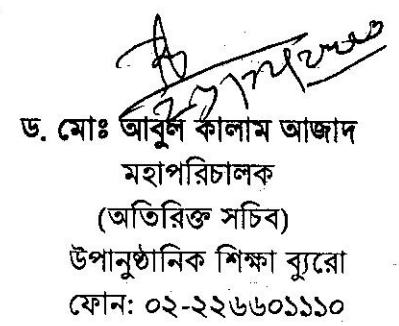 ড. মোঃ আবুল কালাম আজাদ
মহাপরিচালক
(অতিরিক্ত সচিব)
উপানুষ্ঠানিক শিক্ষা ব্যুরো
ফোন: ০২-২২৬৬০১১১০